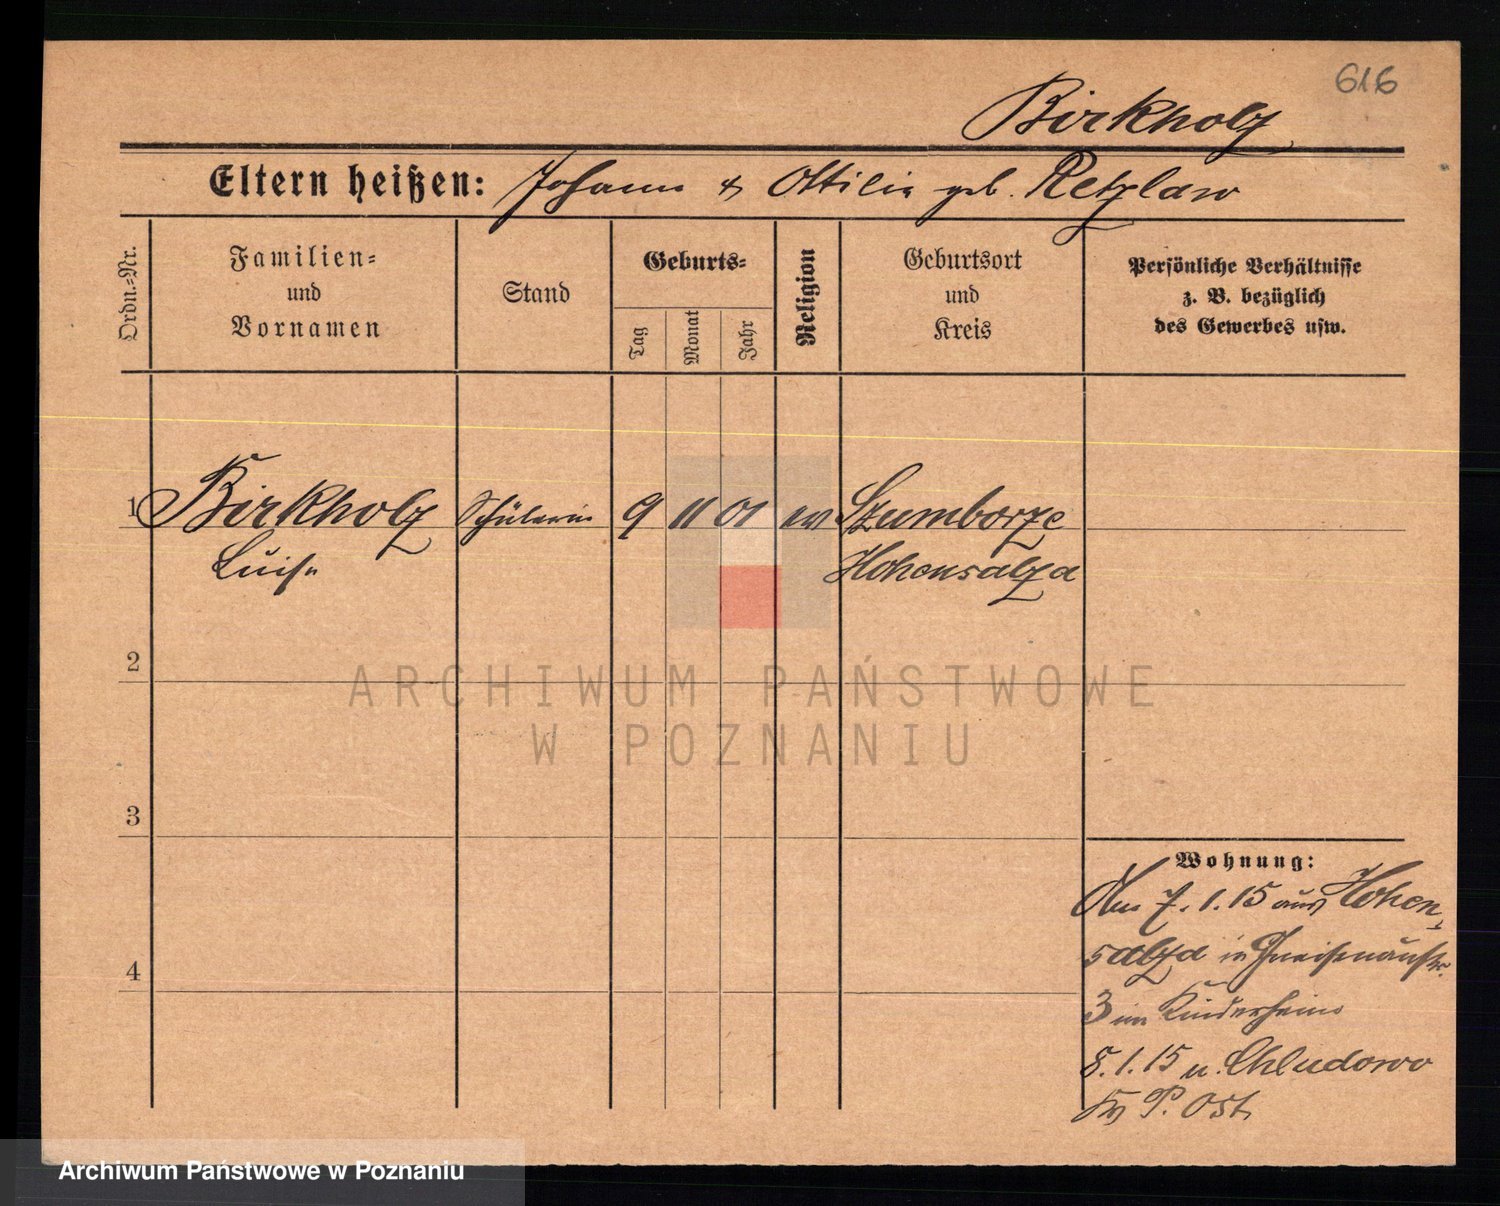 616
Birkholz
Eltern heißen: Johann & Ottilie geb. Retzlaw
Ordn.-Nr.
Familien-
und
Vornamen
Stand
Geburts-
Tag
Monat
Jahr
Religion
Geburtsort
und
Kreis
Persönliche Verhältnisse
z. B. bezüglich
des Gewerbes usw.
1 Birkholz Schülerin 9 11 01 ev Szumborze
Luise Hohensalza
2
3
4
Wohnung:
Am 7.1.15 aus Hohen,
salza in Gneisenaustr.
3 im Kinderheim
8.1.15 n. Chludowo
Kr P. Ost.
ARCHIWUM PAŃSTWOWE
W POZNANIU
Archiwum Państwowe w Poznaniu